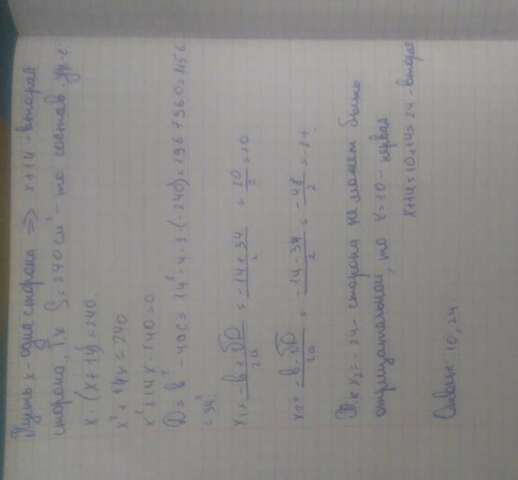 Пусть x - одна сторона => x+14 - вторая
сторона. Т.к S = 240 см² - то состав. ур-е:
x · (x+14) = 240
x² + 14x = 240
x² + 14x - 240 = 0
D = b² - 4ac = 14² - 4 · 1 · (-240) = 196 + 960 = 1156
= 34²
x₁ = -b + √D / 2a = -14 + 34 / 2 = 20 / 2 = 10
x₂ = -b - √D / 2a = -14 - 34 / 2 = -48 / 2 = -24
Т.к x₂ = -24 - сторона не может быть
отрицательной, то x = 10 - первая
x+14 = 10+14 = 24 - вторая
Ответ: 10, 24